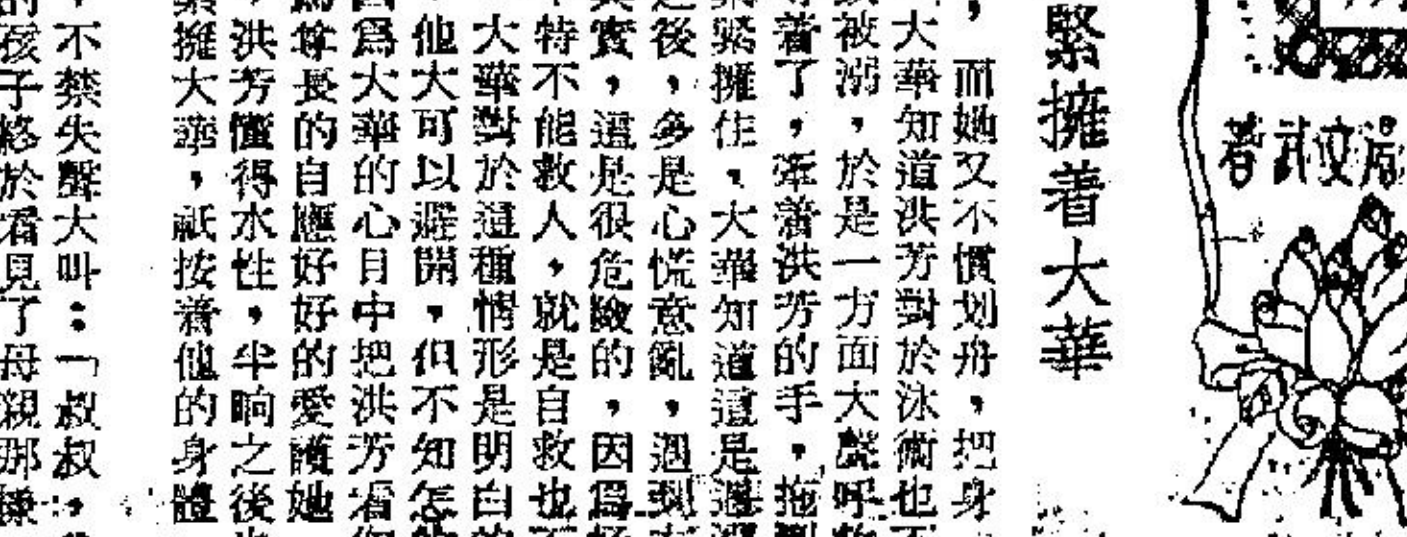 馮文武著
緊擁着大華
，而她又不慣划舟，把身
大華知道洪芳對於泳術也不
被溺，於是一方面大聲呼救
着了，牽着洪芳的手，拖到
緊擁住，大華知道這是遇溺
後，多是心慌意亂，遇到有
實，還是很危險的，因爲怪
特不能救人，就是自救也不
大華對於這種情形是明白的
他大可以避開，但不知怎的
爲大華的心目中把洪芳看個
尊長的自應好好的愛護她
，洪芳懂得水性，半晌之後
緊擁大華，祇按着他的身體
，不禁失聲大叫：「叔叔，
的孩子終於看見了母親那樣